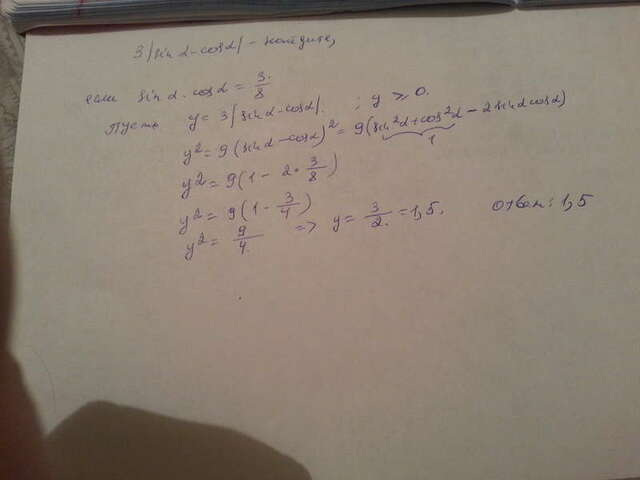 3|sin α-cos α| - найдите,
если sin α · cos α = 3/8
Пусть y = 3|sin α-cos α| ; y ≥ 0.
y² = 9(sin α - cos α)² = 9(sin²α + cos²α - 2 sin α cos α)
1
y² = 9(1 - 2 · 3/8)
y² = 9(1 - 3/4)
y² = 9/4 => y = 3/2 = 1,5. ответ: 1,5